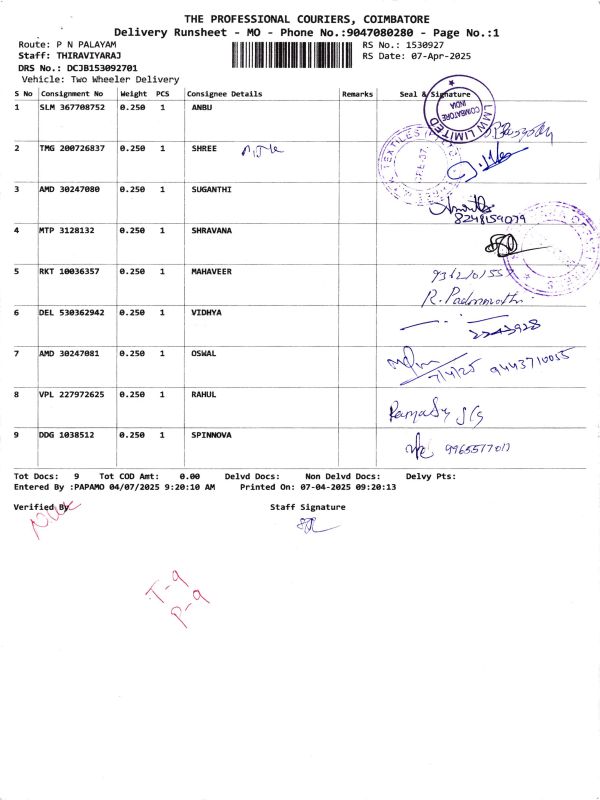 THE PROFESSIONAL COURIERS, COIMBATORE
Delivery Runsheet - MO - Phone No.:9047080280 - Page No.:1
Route: P N PALAYAM RS No.: 1530927
Staff: THIRAVIYARAJ RS Date: 07-Apr-2025
DRS No.: DCJB153092701
Vehicle: Two Wheeler Delivery
S No Consignment No Weight PCS Consignee Details Remarks Seal & Signature
1 SLM 367708752 0.250 1 ANBU
LMW LIMITED COIMBATORE INDIA
2 TMG 200726837 0.250 1 SHREE
TEXTILES
3 AMD 30247080 0.250 1 SUGANTHI
8248159079
4 MTP 3128132 0.250 1 SHRAVANA
5 RKT 10036357 0.250 1 MAHAVEER
R. Padmavathi
6 DEL 530362942 0.250 1 VIDHYA
7 AMD 30247081 0.250 1 OSWAL
7/4/25 9443710055
8 VPL 227972625 0.250 1 RAHUL
9 DDG 1038512 0.250 1 SPINNOVA
9965517017
Tot Docs: 9 Tot COD Amt: 0.00 Delvd Docs: Non Delvd Docs: Delvy Pts:
Entered By :PAPAMO 04/07/2025 9:20:10 AM Printed On: 07-04-2025 09:20:13
Verified By Staff Signature
T-9
P-9